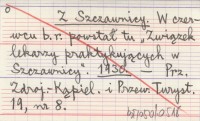 Z Szczawnicy. W czer-
wcu b.r. powstał tu „Związek
lekarzy praktykujących w
Szczawnicy. 1936 — Prz.
Zdroj.-Kąpiel. i Przew. Turyst.
19, nr 8.